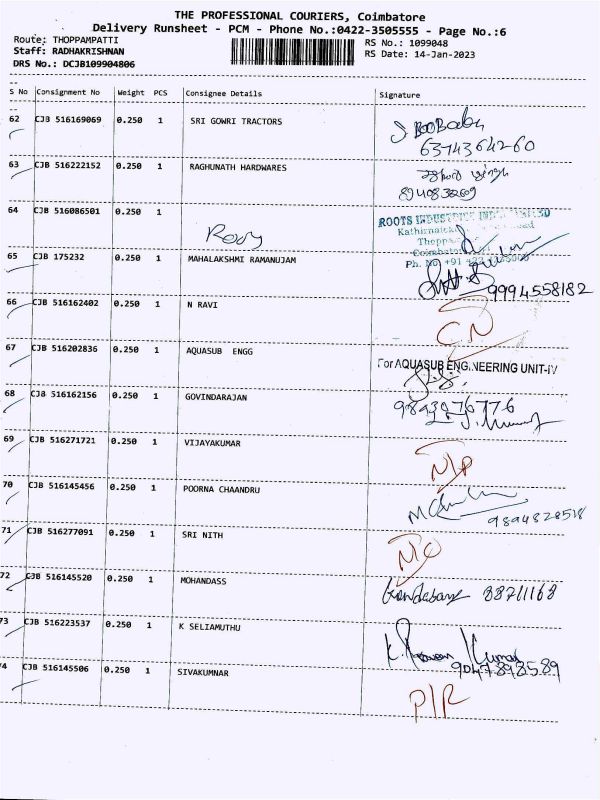 THE PROFESSIONAL COURIERS, Coimbatore
Delivery Runsheet - PCM - Phone No.:0422-3505555 - Page No.:6
Route: THOPPAMPATTI
RS No.: 1099048
Staff: RADHAKRISHNAN
RS Date: 14-Jan-2023
DRS No.: DCJB109904806
S No Consignment No Weight PCS Consignee Details Signature
62 CJB 516169069 0.250 1 SRI GOWRI TRACTORS
6374364260
63 CJB 516222152 0.250 1 RAGHUNATH HARDWARES
64 CJB 516086501 0.250 1
ROOTS INDUSTRIES
65 CJB 175232 0.250 1 MAHALAKSHMI RAMANUJAM
9994558182
66 CJB 516162402 0.250 1 N RAVI
C.N
67 CJB 516202836 0.250 1 AQUASUB ENGG
For AQUASUB ENGINEERING UNIT-IV
68 CJB 516162156 0.250 1 GOVINDARAJAN
69 CJB 516271721 0.250 1 VIJAYAKUMAR
N/P
70 CJB 516145456 0.250 1 POORNA CHAANDRU
71 CJB 516277091 0.250 1 SRI NITH
72 CJB 516145520 0.250 1 MOHANDASS
73 CJB 516223537 0.250 1 K SELIAMUTHU
74 CJB 516145506 0.250 1 SIVAKUMNAR
P/R